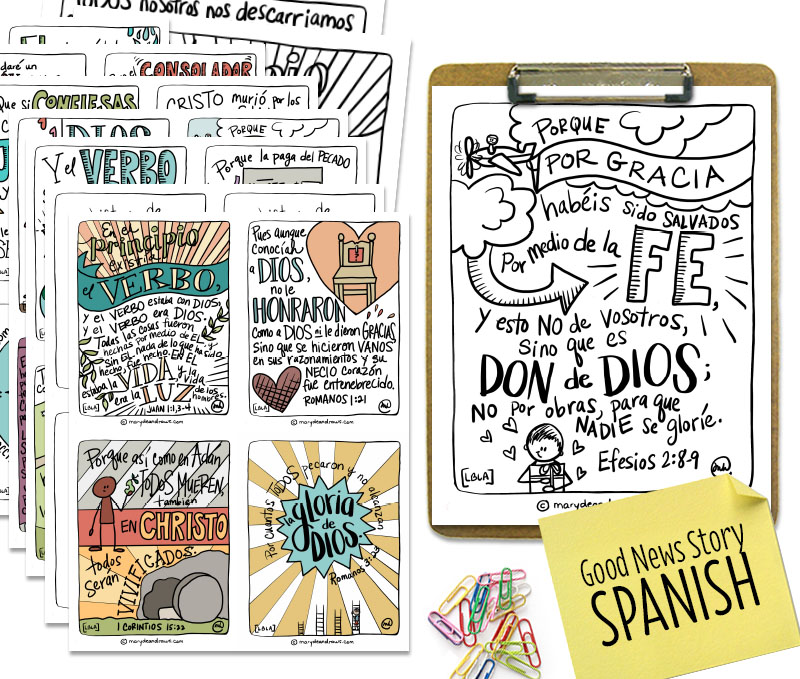 TODOS nosotros nos descarriamos
CONSOLADOR
Que si CONFIESAS
CRISTO murió por los
DIOS
PORQUE
Y el VERBO
Porque la paga del PECADO
En el
principio
existía
el VERBO,
y el VERBO estaba con DIOS,
y el VERBO era DIOS.
Todas las cosas fueron
hechas por medio de EL y
sin EL nada de lo que ha sido
hecho, fue hecho. EN EL
estaba la VIDA, y la vida
era la LUZ de los hombres.
JUAN 1:1,3-4
[LBLA]
© marydeandraws.com
Pues aunque
conocían
a DIOS,
no le
HONRARON
como a DIOS ni le dieron GRACIAS,
sino que se hicieron VANOS
en sus razonamientos y su
NECIO corazón
fue entenebrecido.
ROMANOS 1:21
[LBLA]
© marydeandraws.com
Porque así como en Adán
TODOS MUEREN,
también
EN CHRISTO
todos
serán
VIVIFICADOS.
[LBLA]
1 CORINTIOS 15:22
© marydeandraws.com
Por cuantos TODOS pecaron y no alcanzan
la gloria
de
DIOS.
Romanos 3:23
[LBLA]
© marydeandraws.com
PORQUE
POR GRACIA
habéis sido SALVADOS
Por medio de la
FE,
Y esto NO de vosotros,
sino que es
DON de DIOS;
NO por obras, para que
NADIE se gloríe.
Efesios 2:8-9
[LBLA]
© marydeandraws.com
Good News Story
SPANISH